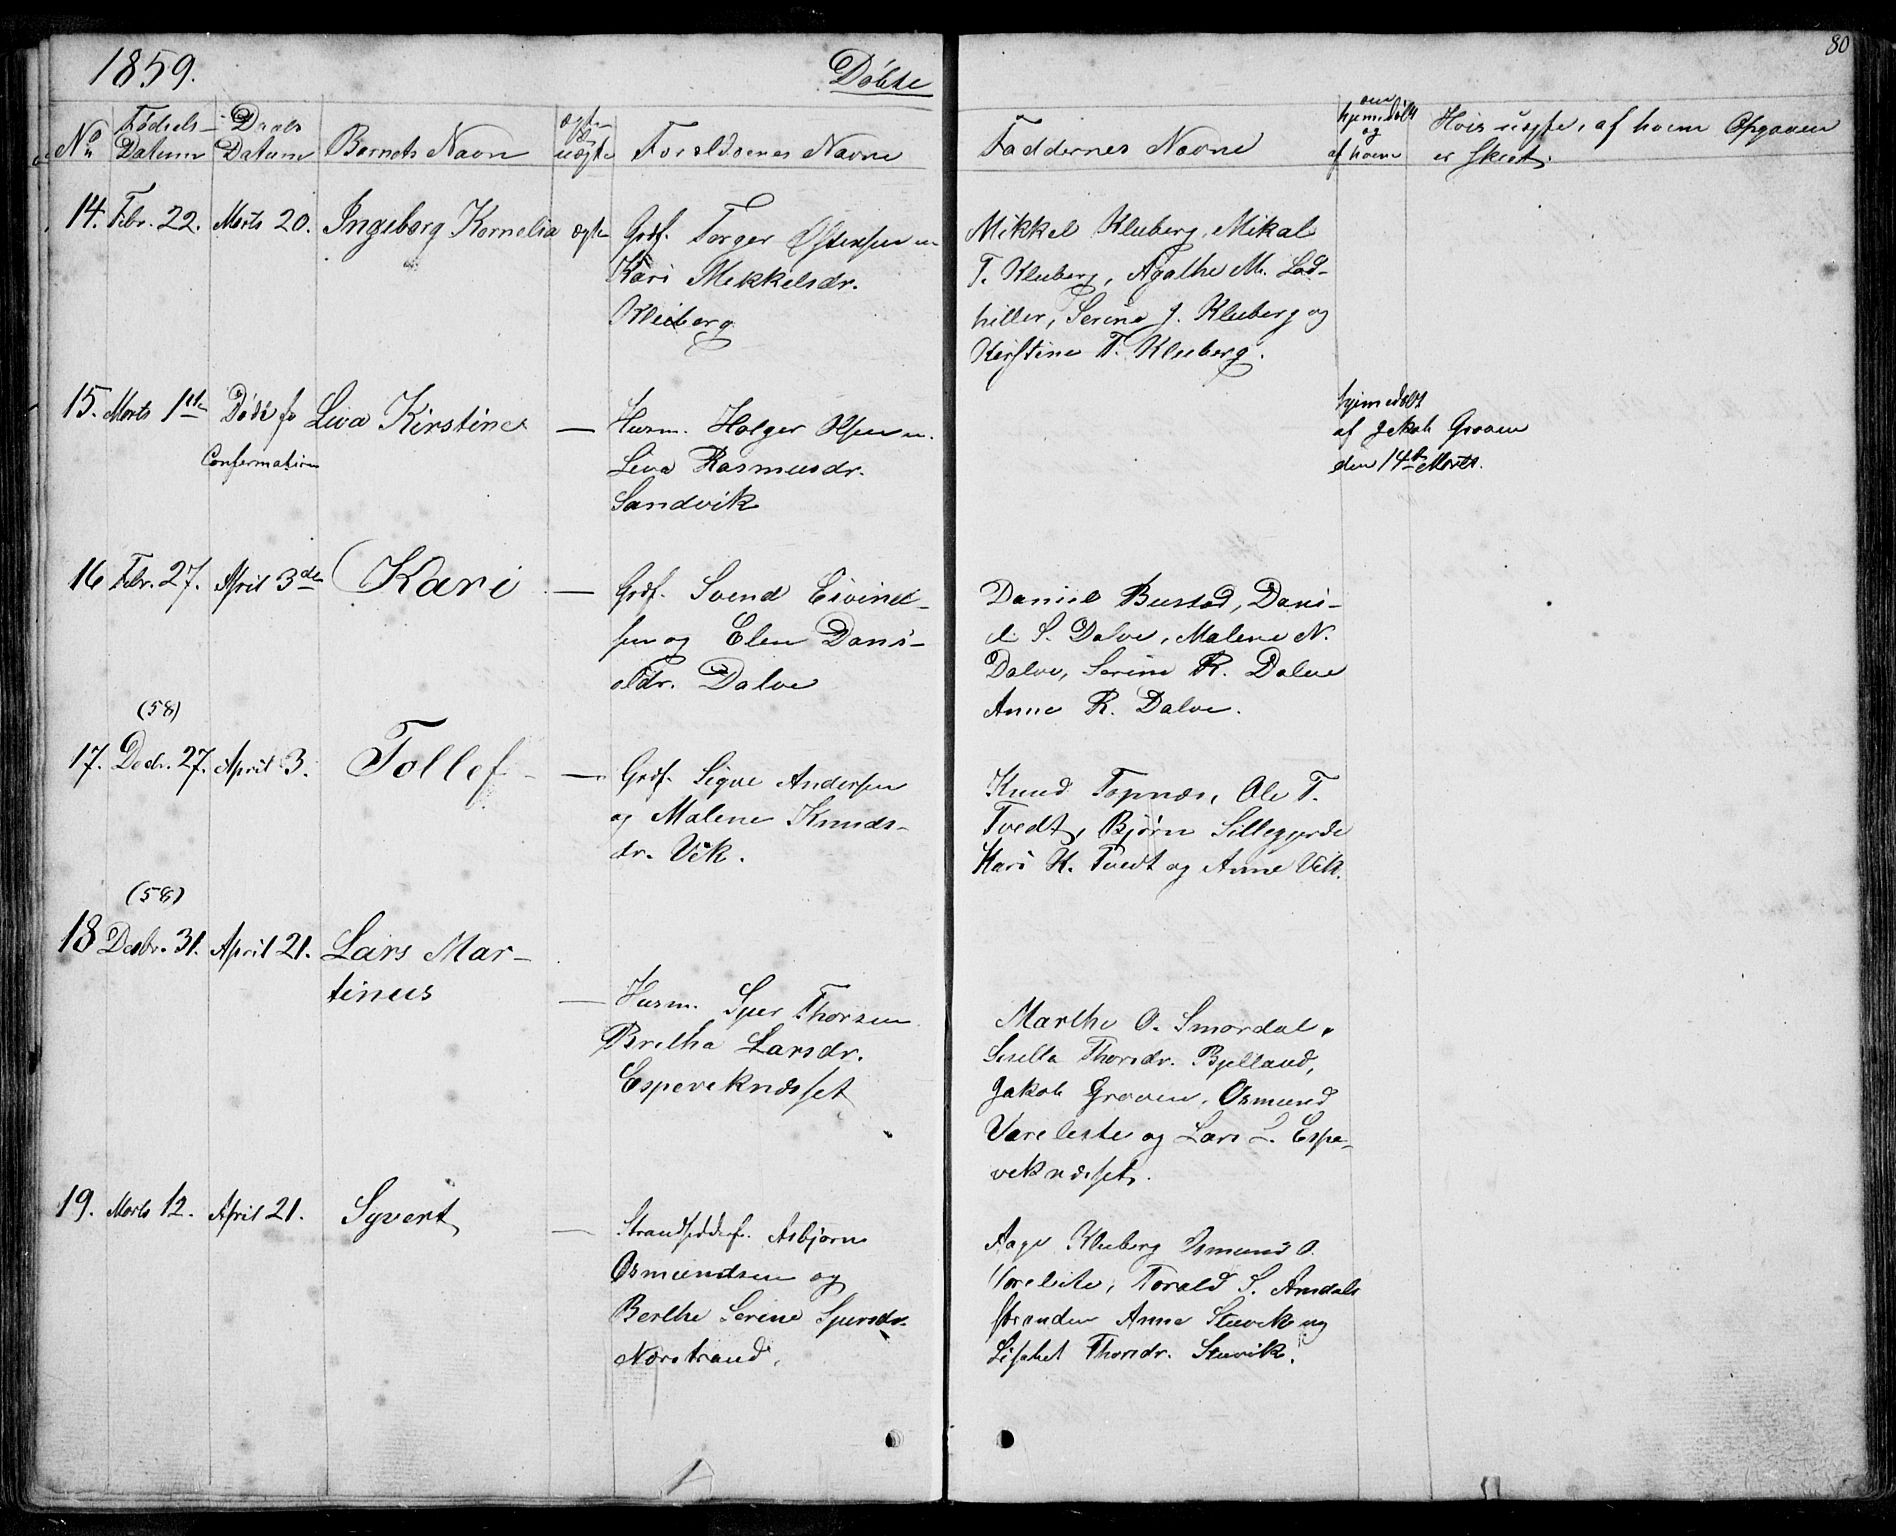 1859.
Döbte
80
No
Fødsels-
Datum
Daabs
Datum
Barnets Navn
ægte
uægte
Forældrenes Navne
Faddernes Navne
om
hjemedøbt
og
af hvem
Hvis uægte, af hvem Opgaven
er skeet.
14. Febr. 22. Marts 20. Ingeborg Kornelia ægte Grdf. Torger Østensen u.
Kari Mikkelsdr.
Kleiberg
Mikkel Kleiberg, Mikal
T. Kleiberg, Agathe M. Lad-
hiller, Serine J. Kleiberg og
Kirstine T. Kleiberg.
15. Marts 1ste Døde f
Confermation
Liva Kirstine — Husm. Holger Olsen u.
Liva Rasmusdr.
Sandvik
hjemedøbt
af Jakob Groven
den 14de Marts.
16 Febr. 27. April 3de Kari — Grdf. Svend Eivind-
sen og Elen Dani-
eldr. Dalve
Daniel Bustad, Dani-
el S. Dalve, Malene N.
Dalve, Serine R. Dalve
Anne R. Dalve.
(58)
17. Decbr. 27. April 3. Tollef — Grdf. Sigve Andersen
og Malene Knuds-
dr. Vik.
Knud Topnæs, Ole T.
Tvedt, Bjørn Sillegjerde
Kari K. Tvedt og Anne Vik.
(58)
18 Decbr. 31. April 21. Lars Mar-
tinus
— Husm. Sjur Thorsen
Bretha Larsdr.
Espeveknæsset
Marthe O. Smørdal,
Sisella Thorsdr. Bjelland,
Jakob Groven, Osmund
Vareleite og Lars L. Espe-
vekndsset.
19. Marts 12. April 21. Syvert — Strandsidderf. Asbjørn
Osmundsen og
Berthe Serine Sjursdr.
Nærstrand.
Aage Kleiberg Osmund O.
Voreleite, Torald S. Amdals
stranden Anne Stuvik og
Lisabet Thorsdr. Stuvik.